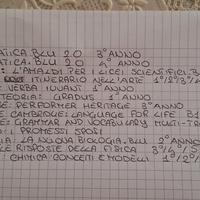 ATICA.BLU 2.0 3° ANNO
ATICA.BLU 2.0 4° ANNO
: L'AMALDI PER I LICEI SCIENTIFICI.B
ITINERARIO NELL'ARTE 1°/2°/3°/4
VERBA IUVANT 1° ANNO
TEORIA: GRADUS 1° ANNO
SE: PERFORMER HERITAGE 3° ANNO
E: CAMBRIDGE: LANGUAGE FOR LIFE B1
E: GRAMMAR AND VOCABULARY MULTI-TR
: I PROMESSI SPOSI
IA: LA NUOVA BIOLOGIA.BLU 2° ANNO
LE RISPOSTE DELLA FISICA 3°/4°/5
CHIMICA CONCETTI E MODELLI 1°/2°/